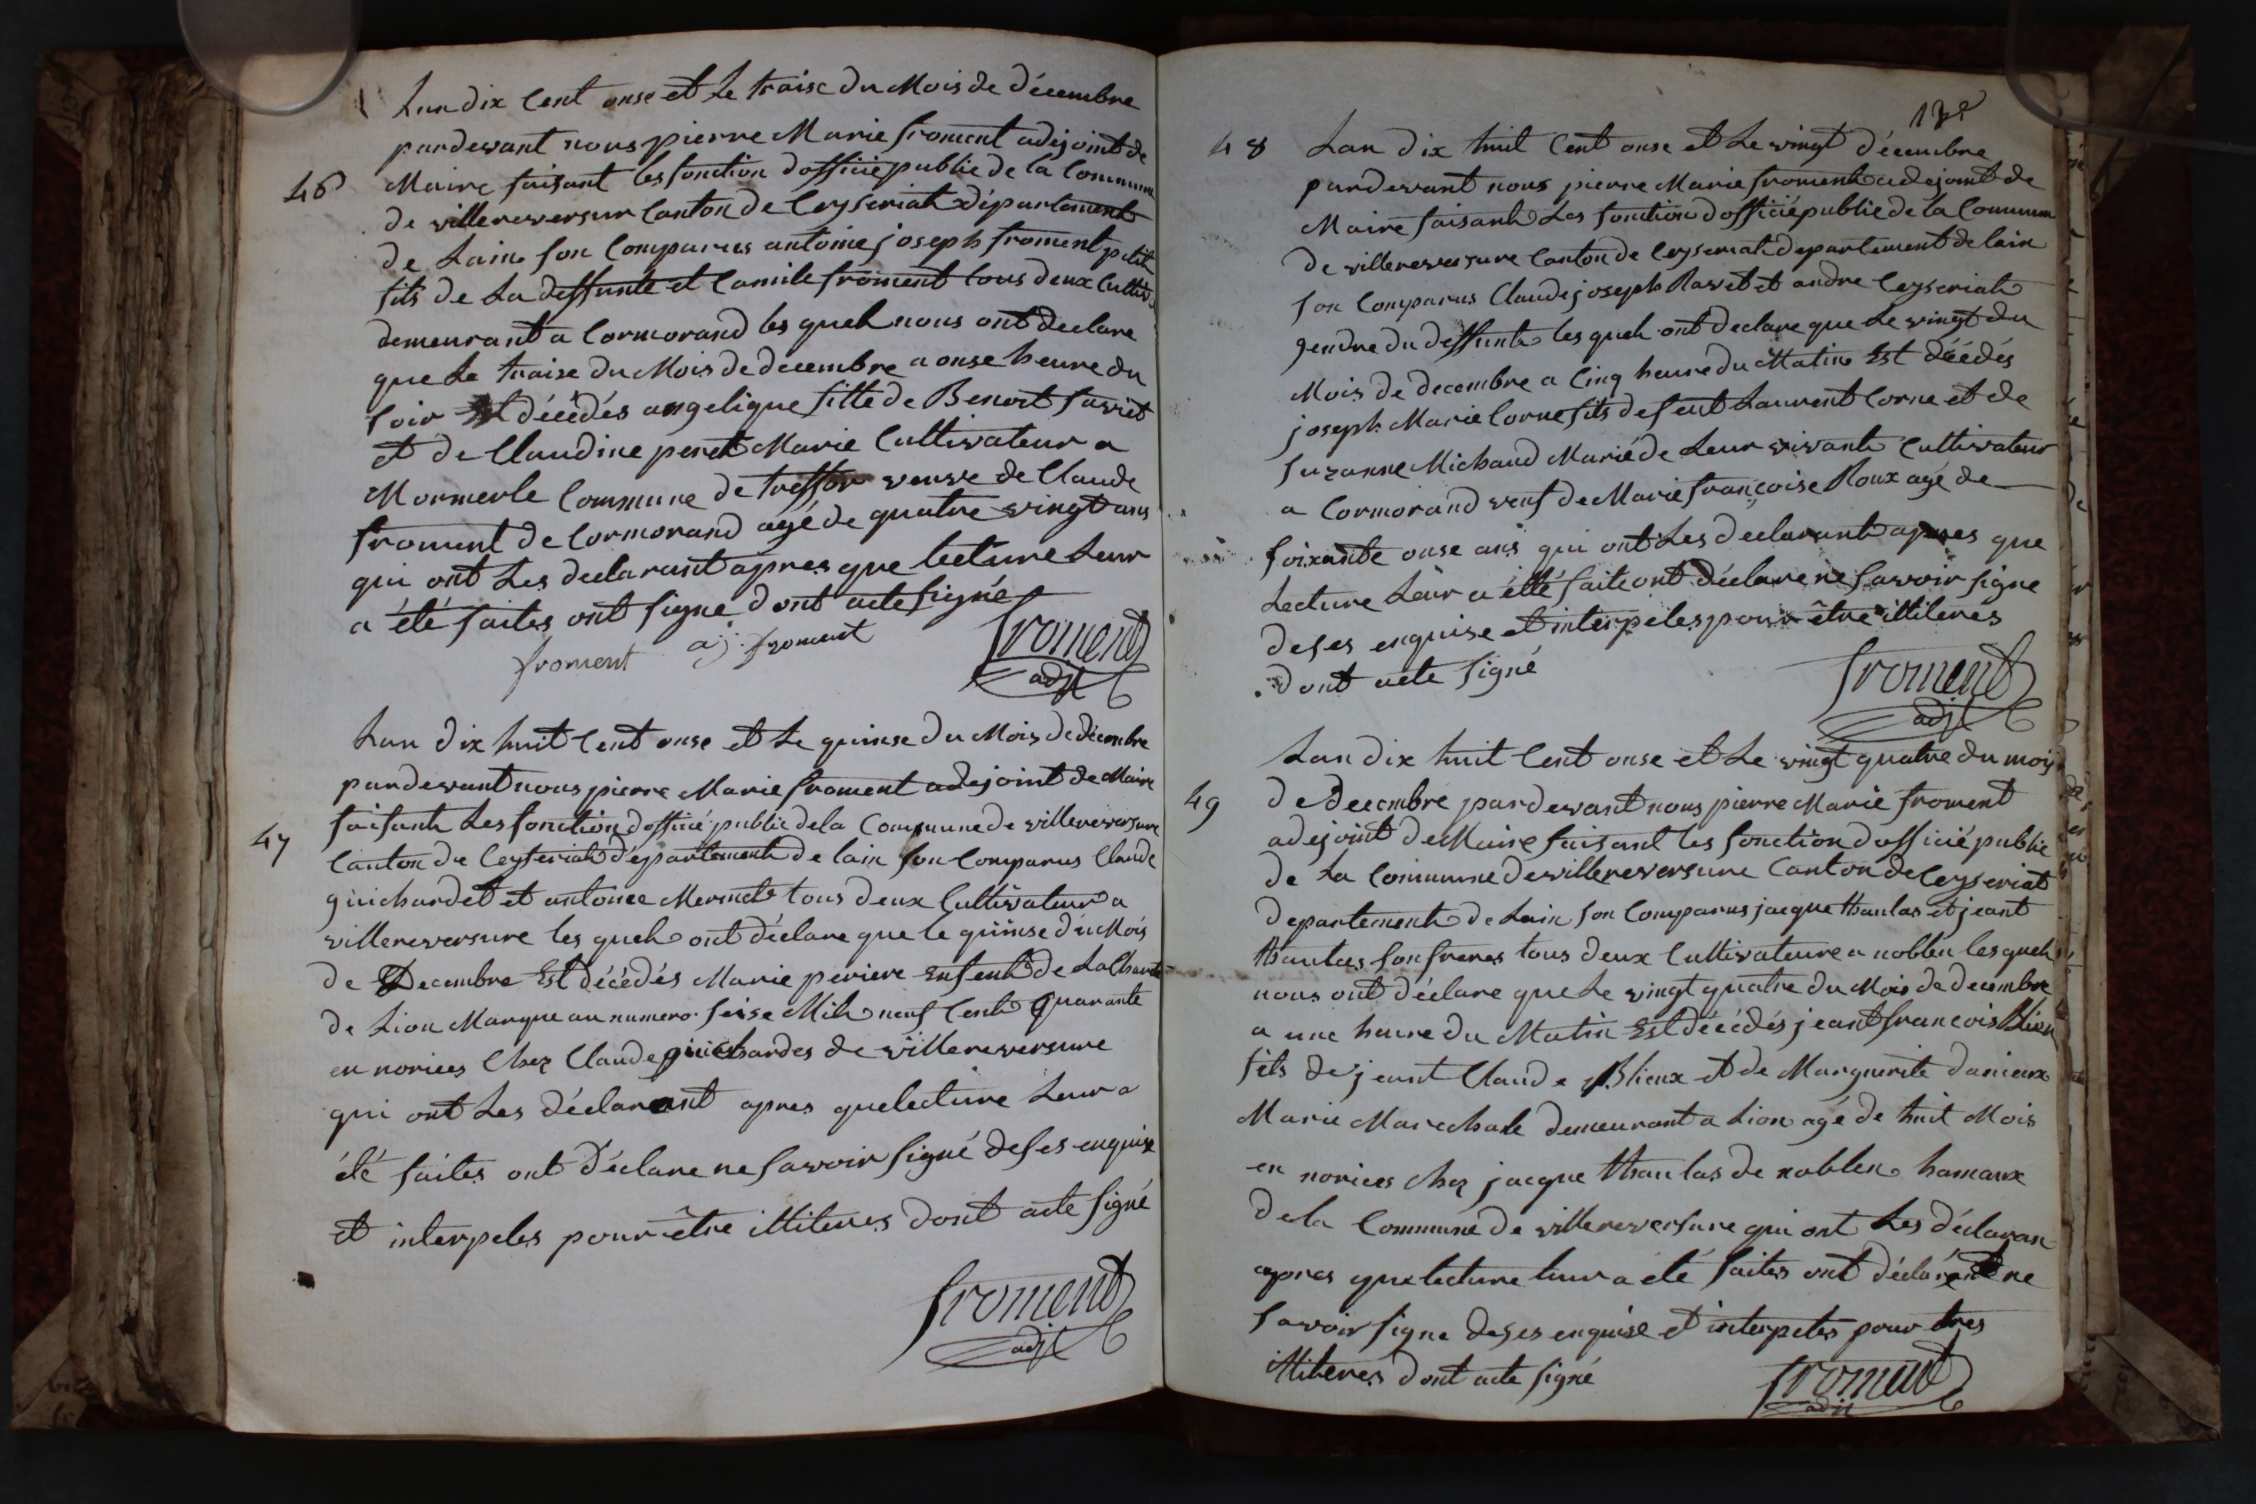 Lan dix Cent onse et Le traise du Mois de décembre
pardevant nous pierre Marie froment adejoint de
46 Maire faisant les fonction dofficié public de la Commune
de villereversur Canton de Ceyseriat département
de Lain son Comparus antoine joseph froment petit
fils de La deffunte et Camile froment tous deux Cultiv
demeurant a Cormorand les quel nous ont declare
que Le traize du Mois de decembre a onse heure du
soir Est décédés angelique fille de Benoit favret
et de Claudine peret Marie Cultivateur a
Mormerle Commune de treffor veuve de Claude
froment de Cormorand agé de quatre vingt ans
qui ont Les declarant apres que lecture Leur
a été faites ont signe dont acte signé
froment a j froment froment
adjt
Lan dix huit Cent onse et Le quinse du Mois de décembre
pardevant nous pierre Marie froment adejoint de Maire
47 faisant Les fonction dofficié public dela Commune de villereversure
Canton de Ceyseriat département de lain son Comparus Claude
guichardet et antoine Mermet tous deux Cultivateur a
villereversure les quel ont déclare que le quinse du Mois
de Decembre Est décédés Marie periere enfent de La Charite
de Lion Marque au numero seise Mile neuf Cent Quarante
en norices Chez Claude guichardes de villereversure
qui ont Les déclarant apres que lecture Leur a
été faites ont déclare ne savoir signé de ses enquise
et interpeles pour être illiteres dont acte signé
froment
adjt
48 Lan dix huit Cent onse et Le vingt décembre
pardevant nous pierre Marie froment adejoint de
Maire faisant Les fonction dofficié public de la Commun
de villereversure Canton de Ceyseriat departement de lain
son Comparus Claude joseph Ravet et andre Ceyseriat
gendre du deffunt les quel ont declare que Le vingt du
Mois de decembre a Cinq heure du Matin Est décédés
joseph Marie Corne fils de feut Laurent Corne et de
suzanne Michaud Marié de Leur vivant Cultivateur
a Cormorand veuf de Marie françoise Roux agé de
soixante onse ans qui ont Les declarant apres que
Lecture Leur a été faite ont déclare ne savoir signe
de ses enquise et interpeles pour être illiterés
dont acte signé
froment
adjt
Lan dix huit Cent onse et Le vingt quatre du mois
49 de decembre pardevant nous pierre Marie froment
adejoint de Maire faisant les fonction dofficié public
de La Commune de villereversure Canton de Ceyseriat
departement de Lain son Comparus jacque thaulas et jeant
thaulas son freres tous deux Cultivateure a noblen les quel
nous ont déclare que Le vingt quatre du Mois de decembre
a une heure du Matin Est décédés jeant francois Blieux
fils de jeant Claude Blieux et de Marguerite danieux
Marie Marechale demeurant a Lion agé de huit Mois
en norices chez jacque thaulas de noblen hamaux
dela Commune de villereversure qui ont Les déclaran
apres que lecture leur a été faites ont déclarent ne
savoir signe deses enquise et interpeles pour tres
illiteres dont acte signé
froment
adjt